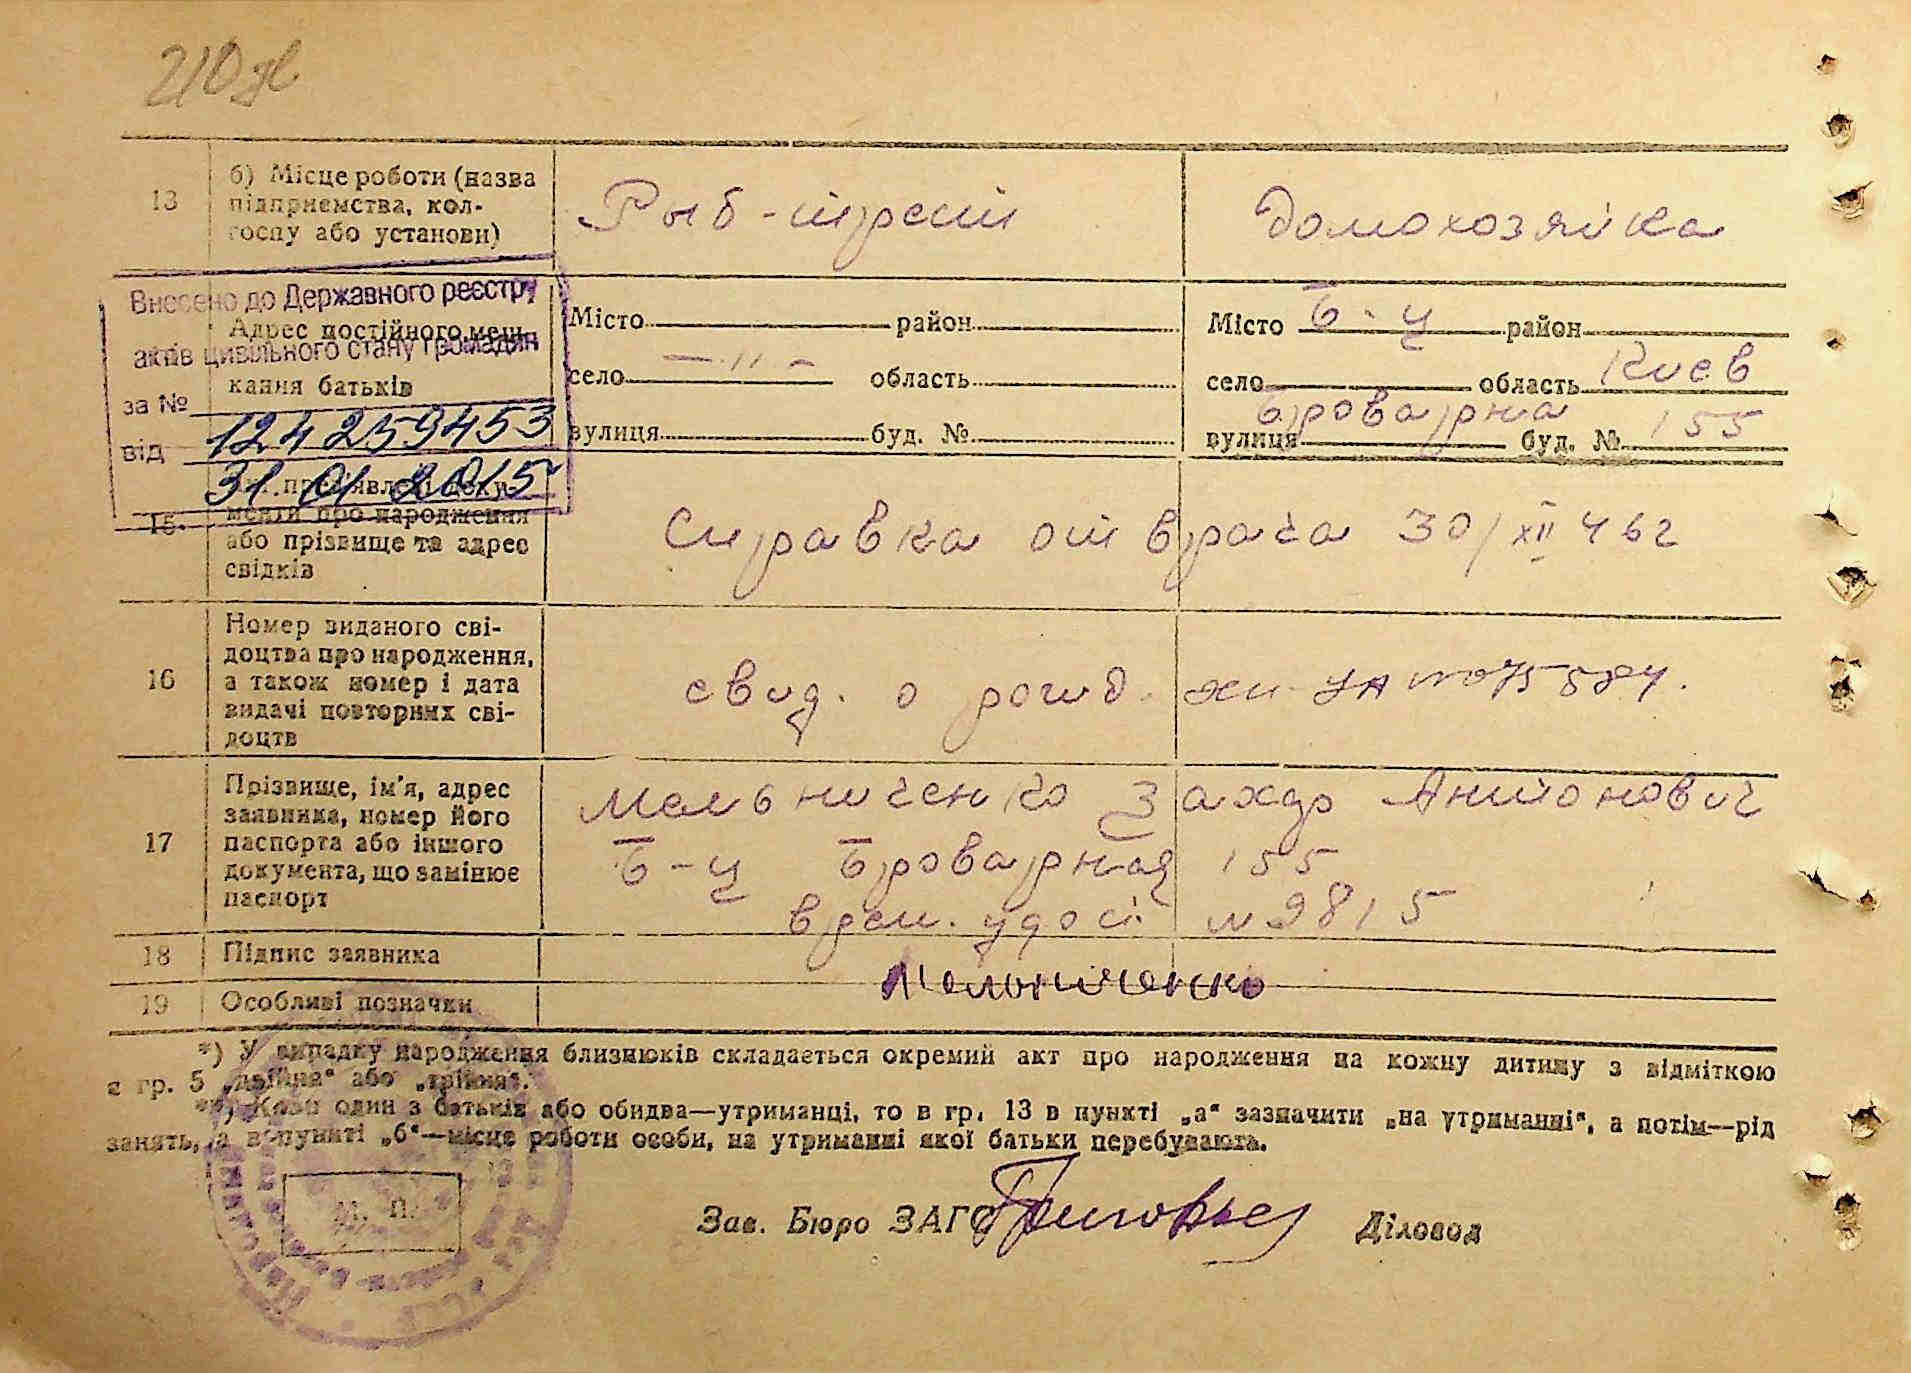 210
13 б) Місце роботи (назва підприємства, колгоспу або установи) Рыб-трест Домохозяйка
Внесено до Державного реєстру
актів цивільного стану громадян
за № 124 259453
від 31.01.2015
Адрес постійного мешкання батьків
Місто район Місто Б-Ц район
село -"- область село область Киев
вулиця буд. № вулиця Броварна буд. № 155
15 менти про народження
або прізвище та адрес
свідків
Справка от врача 30/XII 46г
16 Номер виданого сві-
доцтва про народження,
а також номер і дата
видачі повторних сві-
доцтв
свид. о рожд.
17 Прізвище, ім'я, адрес
заявника, номер його
паспорта або іншого
документа, що замінює
паспорт
Мельниченко Захар Антонович
Б-Ц Броварная 155
врем. удост. №9815
18 Підпис заявника Мельниченко
19 Особливі позначки
*) У випадку народження близнюків складається окремий акт про народження на кожну дитину з відміткою
в гр. 5 „двійня" або „трійня".
**) Коли один з батьків або обидва—утриманці, то в гр. 13 в пункті „а" зазначити „на утриманні", а потім—рід
занять, а в пункті „б"—місце роботи особи, на утриманні якої батьки перебувають.
М. П.
Зав. Бюро ЗАГС Діловод